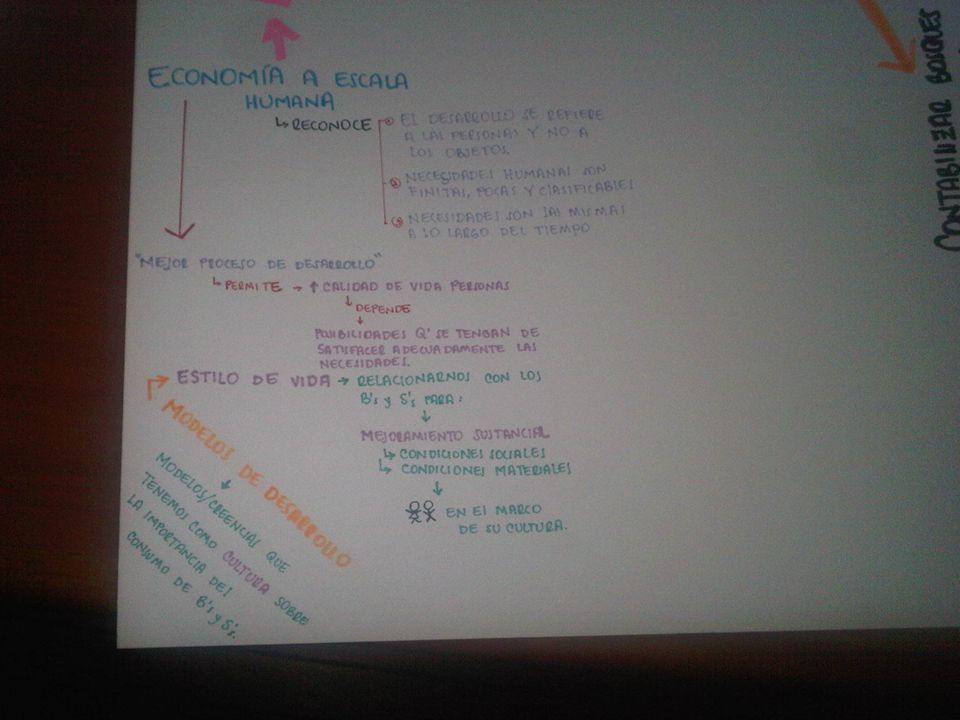 ECONOMÍA A ESCALA
HUMANA
↳ RECONOCE
① EL DESARROLLO SE REFIERE
A LAS PERSONAS Y NO A
LOS OBJETOS.
② NECESIDADES HUMANAS SON
FINITAS, POCAS Y CLASIFICABLES
③ NECESIDADES SON LAS MISMAS
A LO LARGO DEL TIEMPO
"MEJOR PROCESO DE DESARROLLO"
↳ PERMITE → ↑ CALIDAD DE VIDA PERSONAS
↓ DEPENDE
↓
POSIBILIDADES Q' SE TENGAN DE
SATISFACER ADECUADAMENTE LAS
NECESIDADES.
ESTILO DE VIDA → RELACIONARNOS CON LOS
B's y S's PARA:
↓
MEJORAMIENTO SUSTANCIAL
↳ CONDICIONES SOCIALES
↳ CONDICIONES MATERIALES
↓
EN EL MARCO
DE SU CULTURA.
MODELOS DE DESARROLLO
↓
MODELOS/CREENCIAS QUE
TENEMOS COMO CULTURA SOBRE
LA IMPORTANCIA DEL
CONSUMO DE B's y S's.
CONTABILIZAR BOSQUES